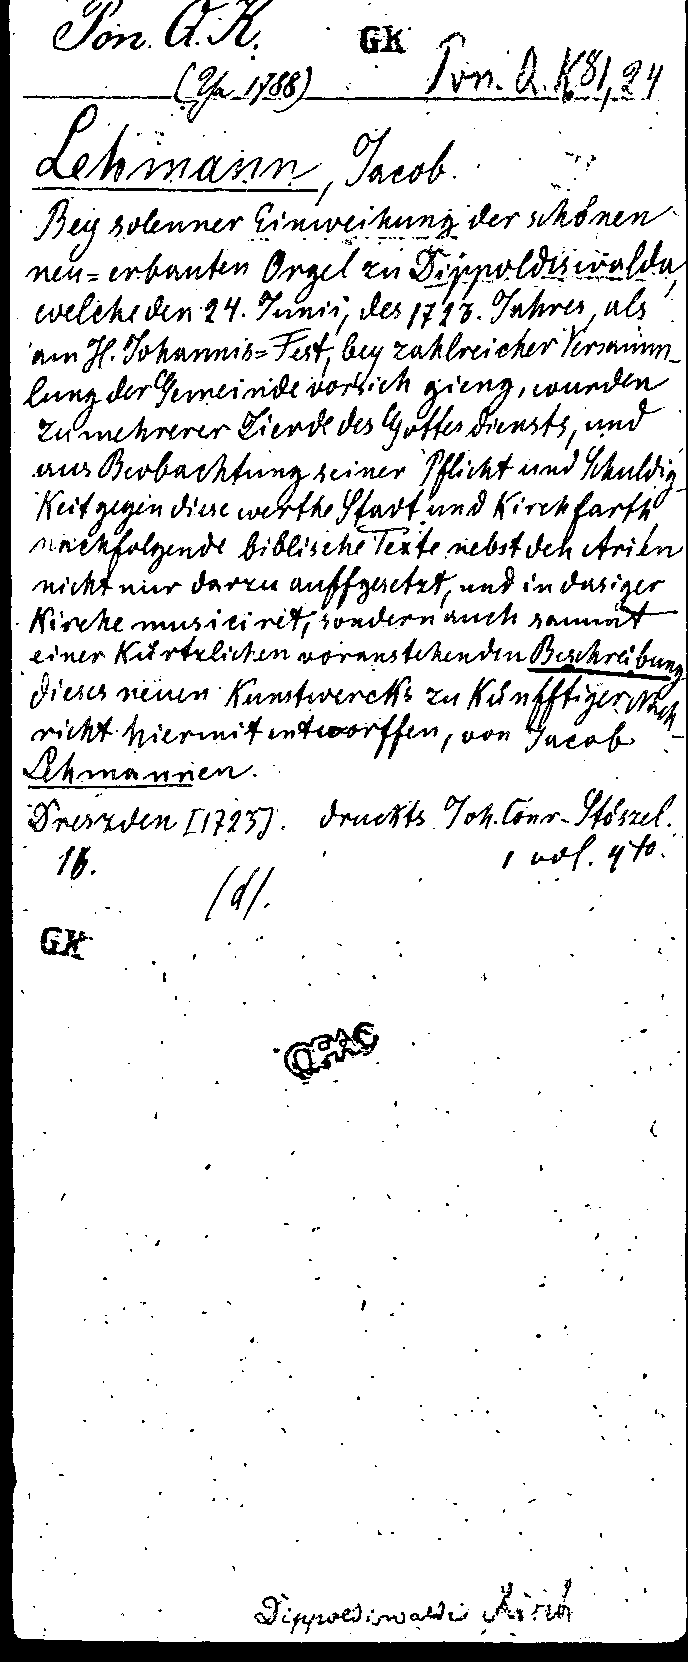 Pon. Q. K.
GK
(Ya 1788) Pon. Q. K 81, 24
Lehmann, Jacob.
Bey solenner Einweihung der schönen
neu=erbauten Orgel zu Dippoldiswalda,
welche den 24. Junii, des 1723. Jahres, als
am H. Johannis=Fest, bey zahlreicher Versamm-
lung der Gemeinde vor sich gieng, wurden
zu mehrerer Zierde des Gottesdiensts, und
aus Beobachtung seiner Pflicht und Schuldig-
keit gegen diese werthe Stadt und Kirchfarth
nachfolgende biblische Texte nebst den Arien
nicht nur darzu auffgesetzt, und in dasiger
Kirche musiciret, sondern auch sammt
einer kürtzlichen voranstehenden Beschreibung
dieses neuen Kunstwercks zu künfftiger Nach-
richt hiermit entworffen, von Jacob
Lehmannen.
Dreszden [1723]. druckts Joh. Conr. Stöszel.
1 vol. 4to.
(d).
GK
OPAC
Dippoldiswalde Kirch